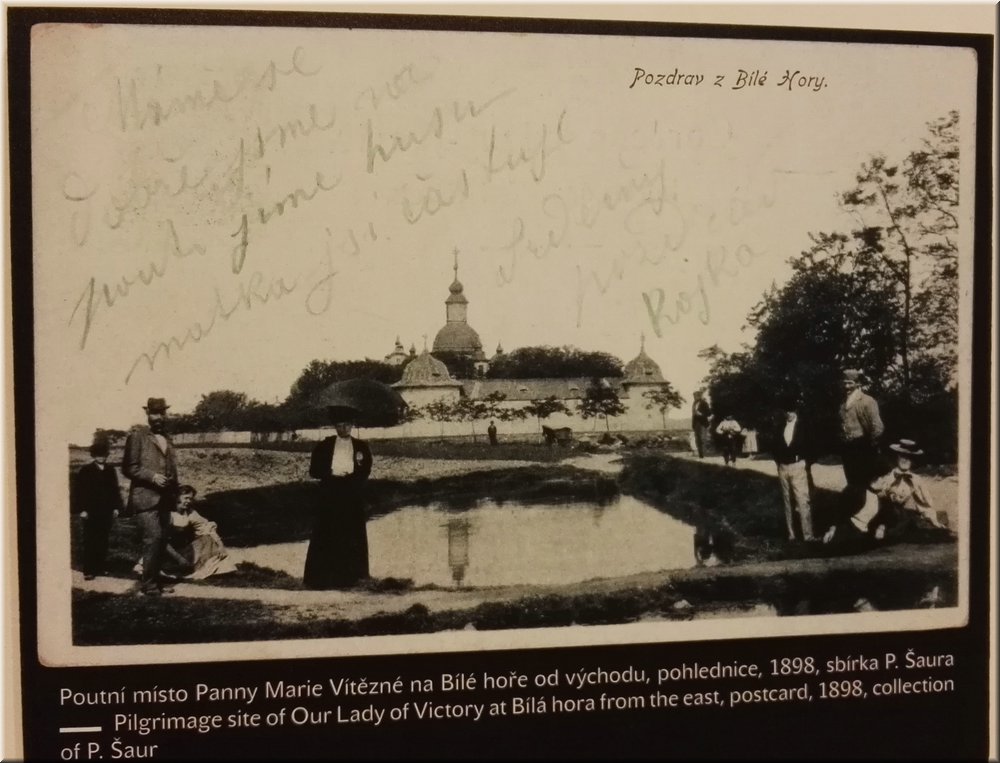 Pozdrav z Bílé Hory.
Máme se
Dobře jsme na
pouti jíme husu
matka jsi částuje
Srdečný
pozdrav
Rojka
Poutní místo Panny Marie Vítězné na Bílé hoře od východu, pohlednice, 1898, sbírka P. Šaura
Pilgrimage site of Our Lady of Victory at Bílá hora from the east, postcard, 1898, collection
of P. Šaur